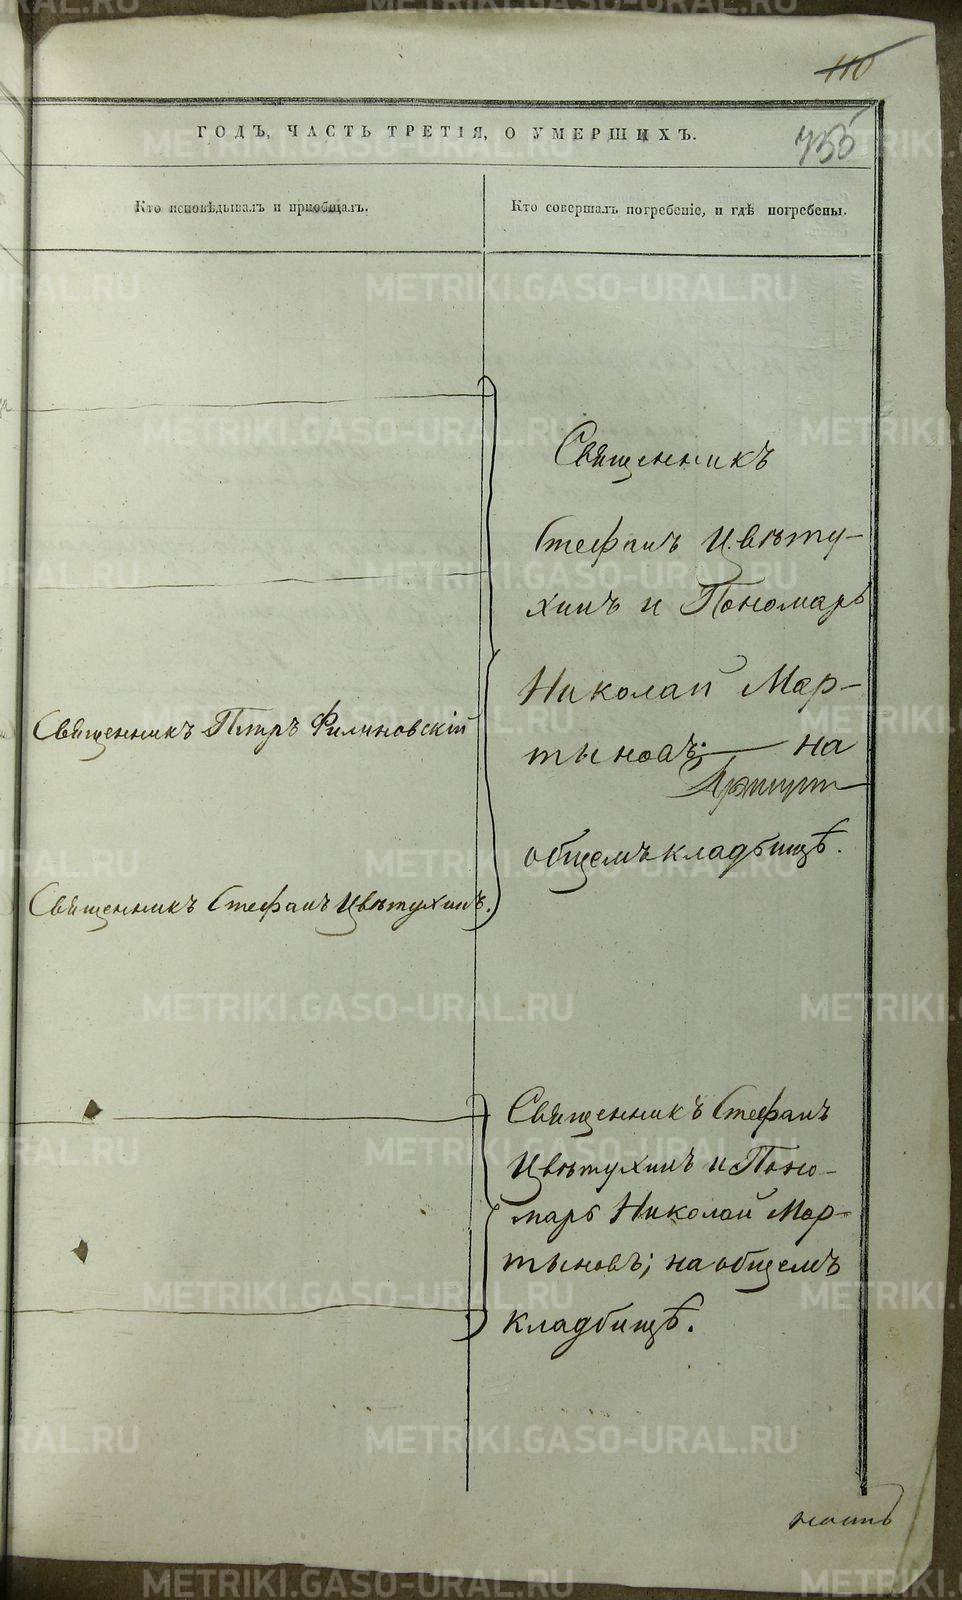 110
735
ГОДЪ, ЧАСТЬ ТРЕТІЯ, О УМЕРШИХЪ.
Кто исповѣдывалъ и приобщалъ.
Кто совершалъ погребеніе, и гдѣ погребены.
Священникъ
Стефанъ Цвѣту-
хинъ и Пономарь
Николай Мар-
тыновъ; на
общемъ кладбищѣ.
Священникъ Петръ Филиновскій
Священникъ Стефанъ Цвѣтухинъ.
Священникъ Стефанъ
Цвѣтухинъ и Поно-
марь Николай Мар-
тыновъ; на общемъ
кладбищѣ.
METRIKI.GASO-URAL.RU